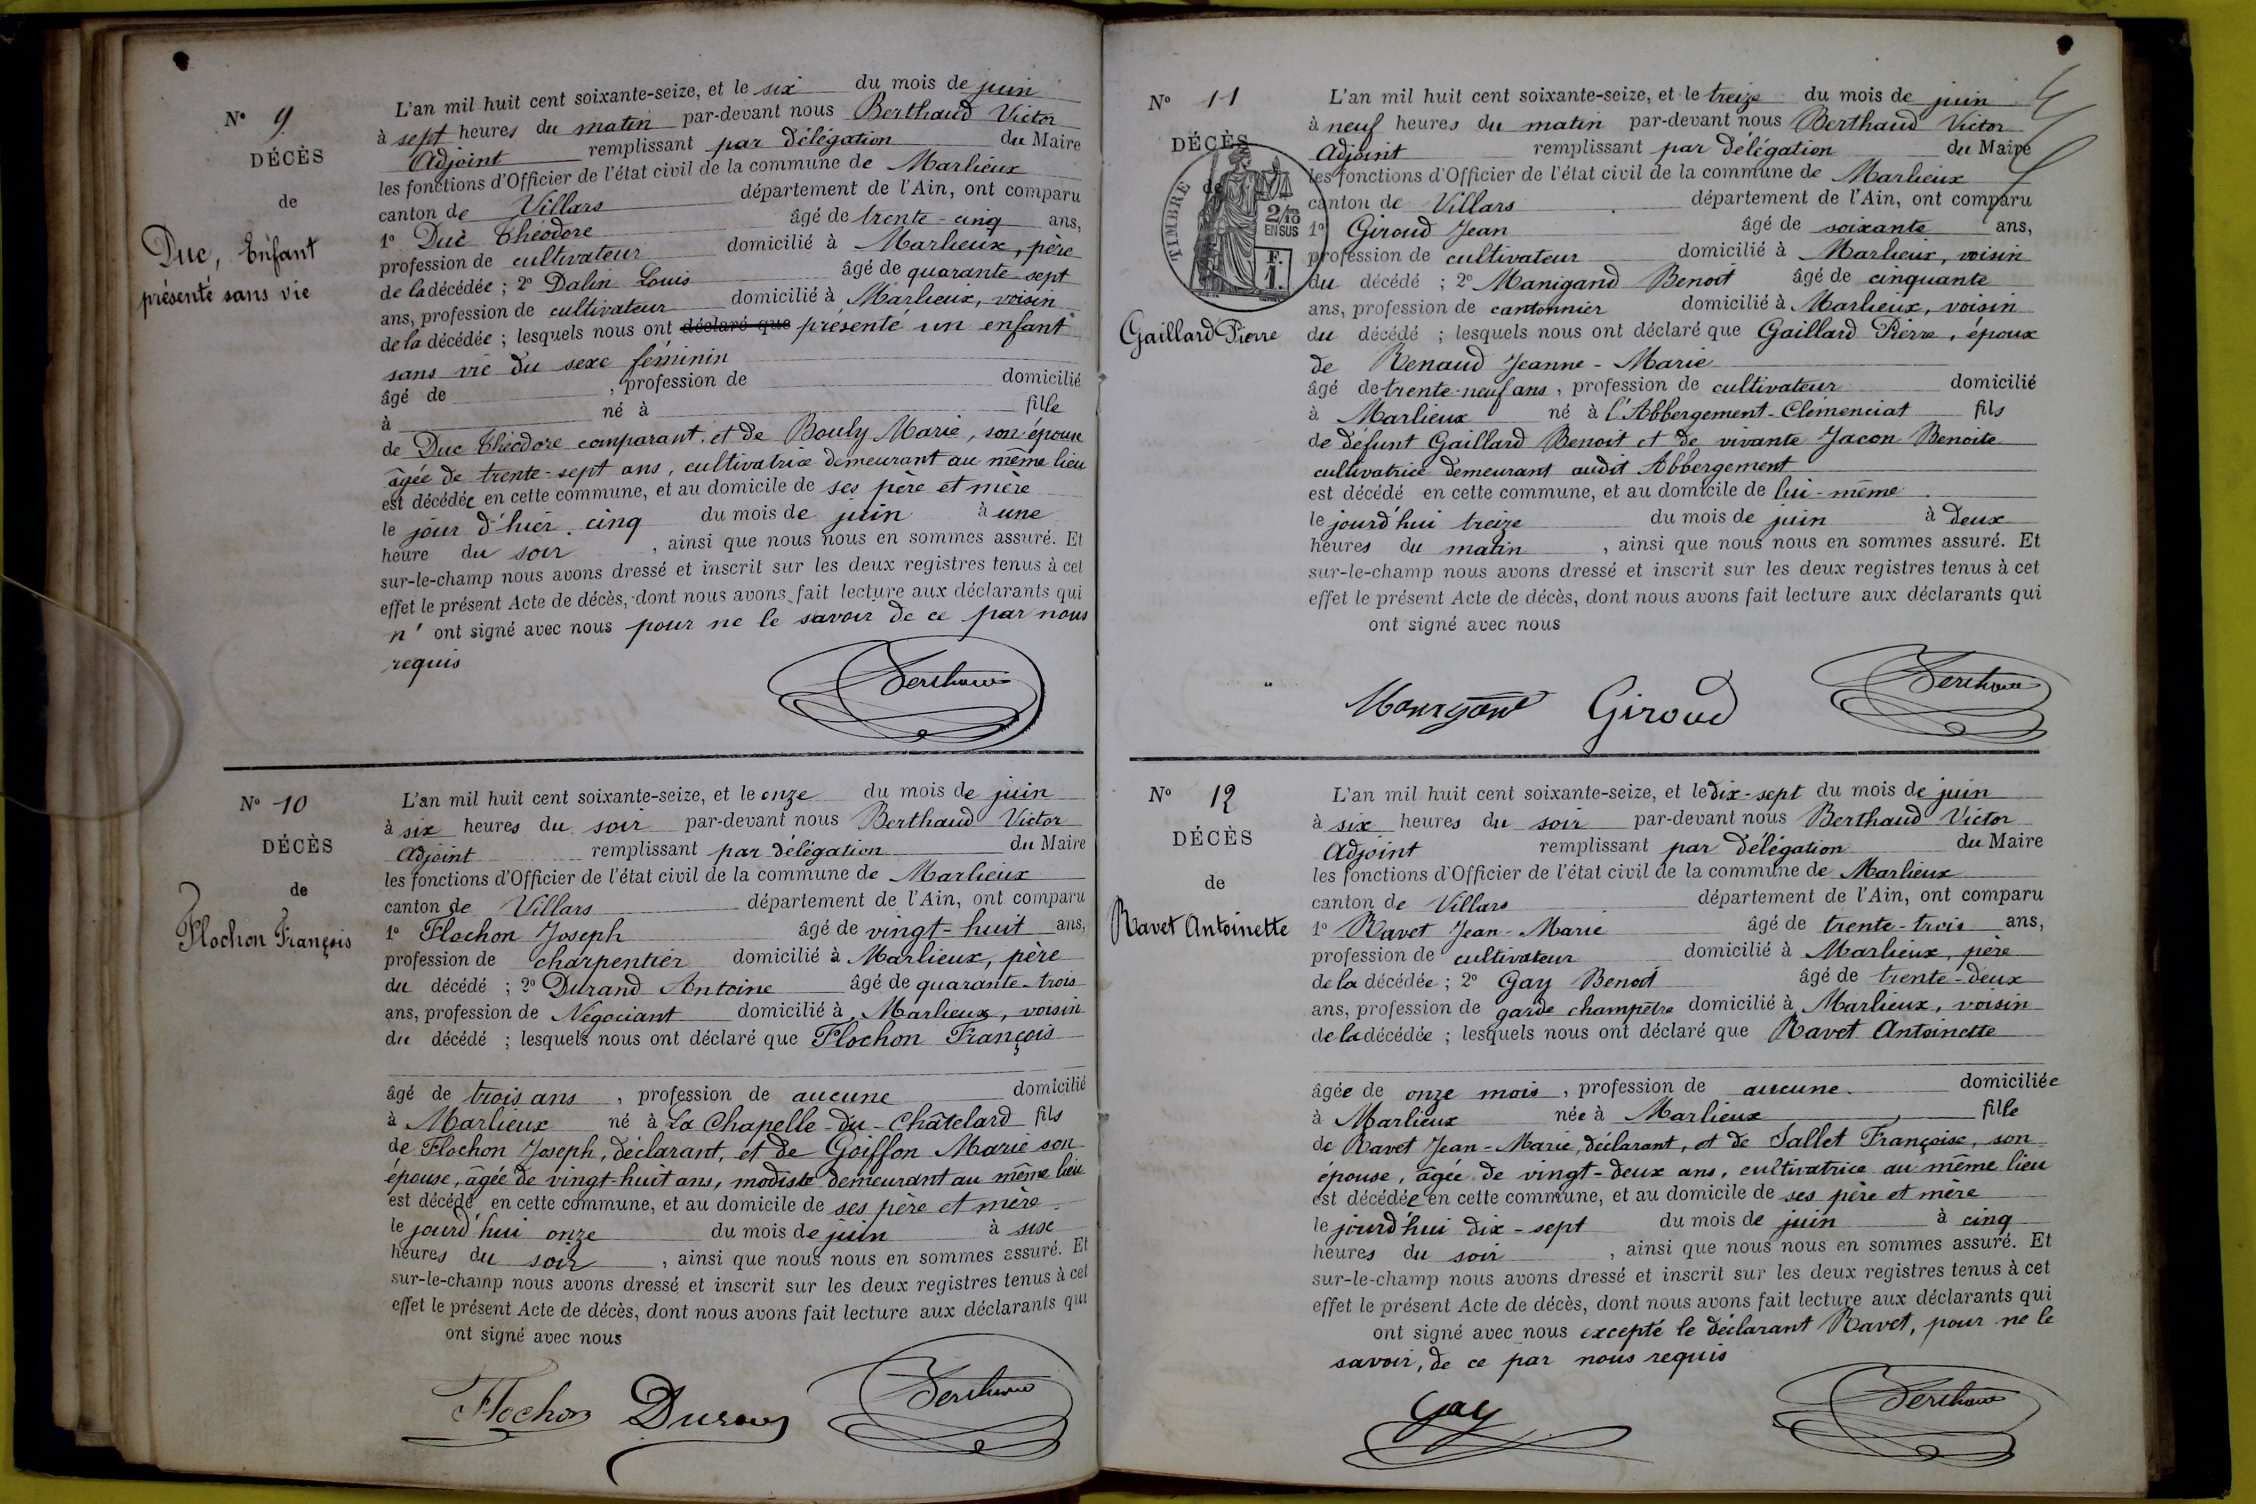 N° 9
DÉCÈS
de
Duc, Enfant
présenté sans vie
L'an mil huit cent soixante-seize, et le six du mois de juin
à sept heures du matin par-devant nous Berthaud Victor
Adjoint remplissant par délégation du Maire
les fonctions d'Officier de l'état civil de la commune de Marlieux
canton de Villars département de l'Ain, ont comparu
1° Duc Théodore âgé de trente-cinq ans,
profession de cultivateur domicilié à Marlieux, père
de la décédée ; 2° Dalin Louis âgé de quarante sept
ans, profession de cultivateur domicilié à Marlieux, voisin
de la décédée ; lesquels nous ont déclaré que présenté un enfant
sans vie du sexe féminin
âgé de , profession de domicilié
à né à fille
de Duc Théodore comparant, et de Bouly Marie, son épouse
âgée de trente-sept ans, cultivatrice demeurant au même lieu
est décédée en cette commune, et au domicile de ses père et mère
le jour d'hier cinq du mois de juin à une
heure du soir , ainsi que nous nous en sommes assuré. Et
sur-le-champ nous avons dressé et inscrit sur les deux registres tenus à cet
effet le présent Acte de décès, dont nous avons fait lecture aux déclarants qui
n' ont signé avec nous pour ne le savoir de ce par nous
requis
Berthaud
N° 10
DÉCÈS
de
Flochon François
L'an mil huit cent soixante-seize, et le onze du mois de juin
à six heures du soir par-devant nous Berthaud Victor
Adjoint remplissant par délégation du Maire
les fonctions d'Officier de l'état civil de la commune de Marlieux
canton de Villars département de l'Ain, ont comparu
1° Flochon Joseph âgé de vingt-huit ans,
profession de charpentier domicilié à Marlieux, père
du décédé ; 2° Durand Antoine âgé de quarante-trois
ans, profession de Négociant domicilié à Marlieux, voisin
du décédé ; lesquels nous ont déclaré que Flochon François
âgé de trois ans , profession de aucune domicilié
à Marlieux né à La Chapelle-du-Châtelard fils
de Flochon Joseph, déclarant, et de Goiffon Marie son
épouse, âgée de vingt-huit ans, modiste demeurant au même lieu
est décédé en cette commune, et au domicile de ses père et mère
le jourd'hui onze du mois de juin à six
heures du soir , ainsi que nous nous en sommes assuré. Et
sur-le-champ nous avons dressé et inscrit sur les deux registres tenus à cet
effet le présent Acte de décès, dont nous avons fait lecture aux déclarants qui
ont signé avec nous
Flochon Durand Berthaud
N° 11
DÉCÈS
de
TIMBRE
2/10
EN SUS
F.
1.
Gaillard Pierre
L'an mil huit cent soixante-seize, et le treize du mois de juin
à neuf heures du matin par-devant nous Berthaud Victor
Adjoint remplissant par délégation du Maire
les fonctions d'Officier de l'état civil de la commune de Marlieux
canton de Villars département de l'Ain, ont comparu
1° Giroud Jean âgé de soixante ans,
profession de cultivateur domicilié à Marlieux, voisin
du décédé ; 2° Manigand Benoit âgé de cinquante
ans, profession de cantonnier domicilié à Marlieux, voisin
du décédé ; lesquels nous ont déclaré que Gaillard Pierre, époux
de Renaud Jeanne-Marie
âgé de trente-neuf ans, profession de cultivateur domicilié
à Marlieux né à l'Abbergement-Clémenciat fils
de défunt Gaillard Benoit et de vivante Jacon Benoite
cultivatrice demeurant audit Abbergement
est décédé en cette commune, et au domicile de lui-même
le jourd'hui treize du mois de juin à deux
heures du matin , ainsi que nous nous en sommes assuré. Et
sur-le-champ nous avons dressé et inscrit sur les deux registres tenus à cet
effet le présent Acte de décès, dont nous avons fait lecture aux déclarants qui
ont signé avec nous
Giroud Berthaud
N° 12
DÉCÈS
de
Ravet Antoinette
L'an mil huit cent soixante-seize, et le dix-sept du mois de juin
à six heures du soir par-devant nous Berthaud Victor
Adjoint remplissant par délégation du Maire
les fonctions d'Officier de l'état civil de la commune de Marlieux
canton de Villars département de l'Ain, ont comparu
1° Ravet Jean-Marie âgé de trente-trois ans,
profession de cultivateur domicilié à Marlieux, père
de la décédée ; 2° Gay Benoit âgé de trente-deux
ans, profession de garde champêtre domicilié à Marlieux, voisin
de la décédée ; lesquels nous ont déclaré que Ravet Antoinette
âgée de onze mois , profession de aucune domiciliée
à Marlieux née à Marlieux fille
de Ravet Jean-Marie, déclarant, et de Sallet Françoise, son
épouse, âgée de vingt-deux ans, cultivatrice au même lieu
est décédée en cette commune, et au domicile de ses père et mère
le jourd'hui dix-sept du mois de juin à cinq
heures du soir , ainsi que nous nous en sommes assuré. Et
sur-le-champ nous avons dressé et inscrit sur les deux registres tenus à cet
effet le présent Acte de décès, dont nous avons fait lecture aux déclarants qui
ont signé avec nous excepté le déclarant Ravet, pour ne le
savoir, de ce par nous requis
Gay Berthaud